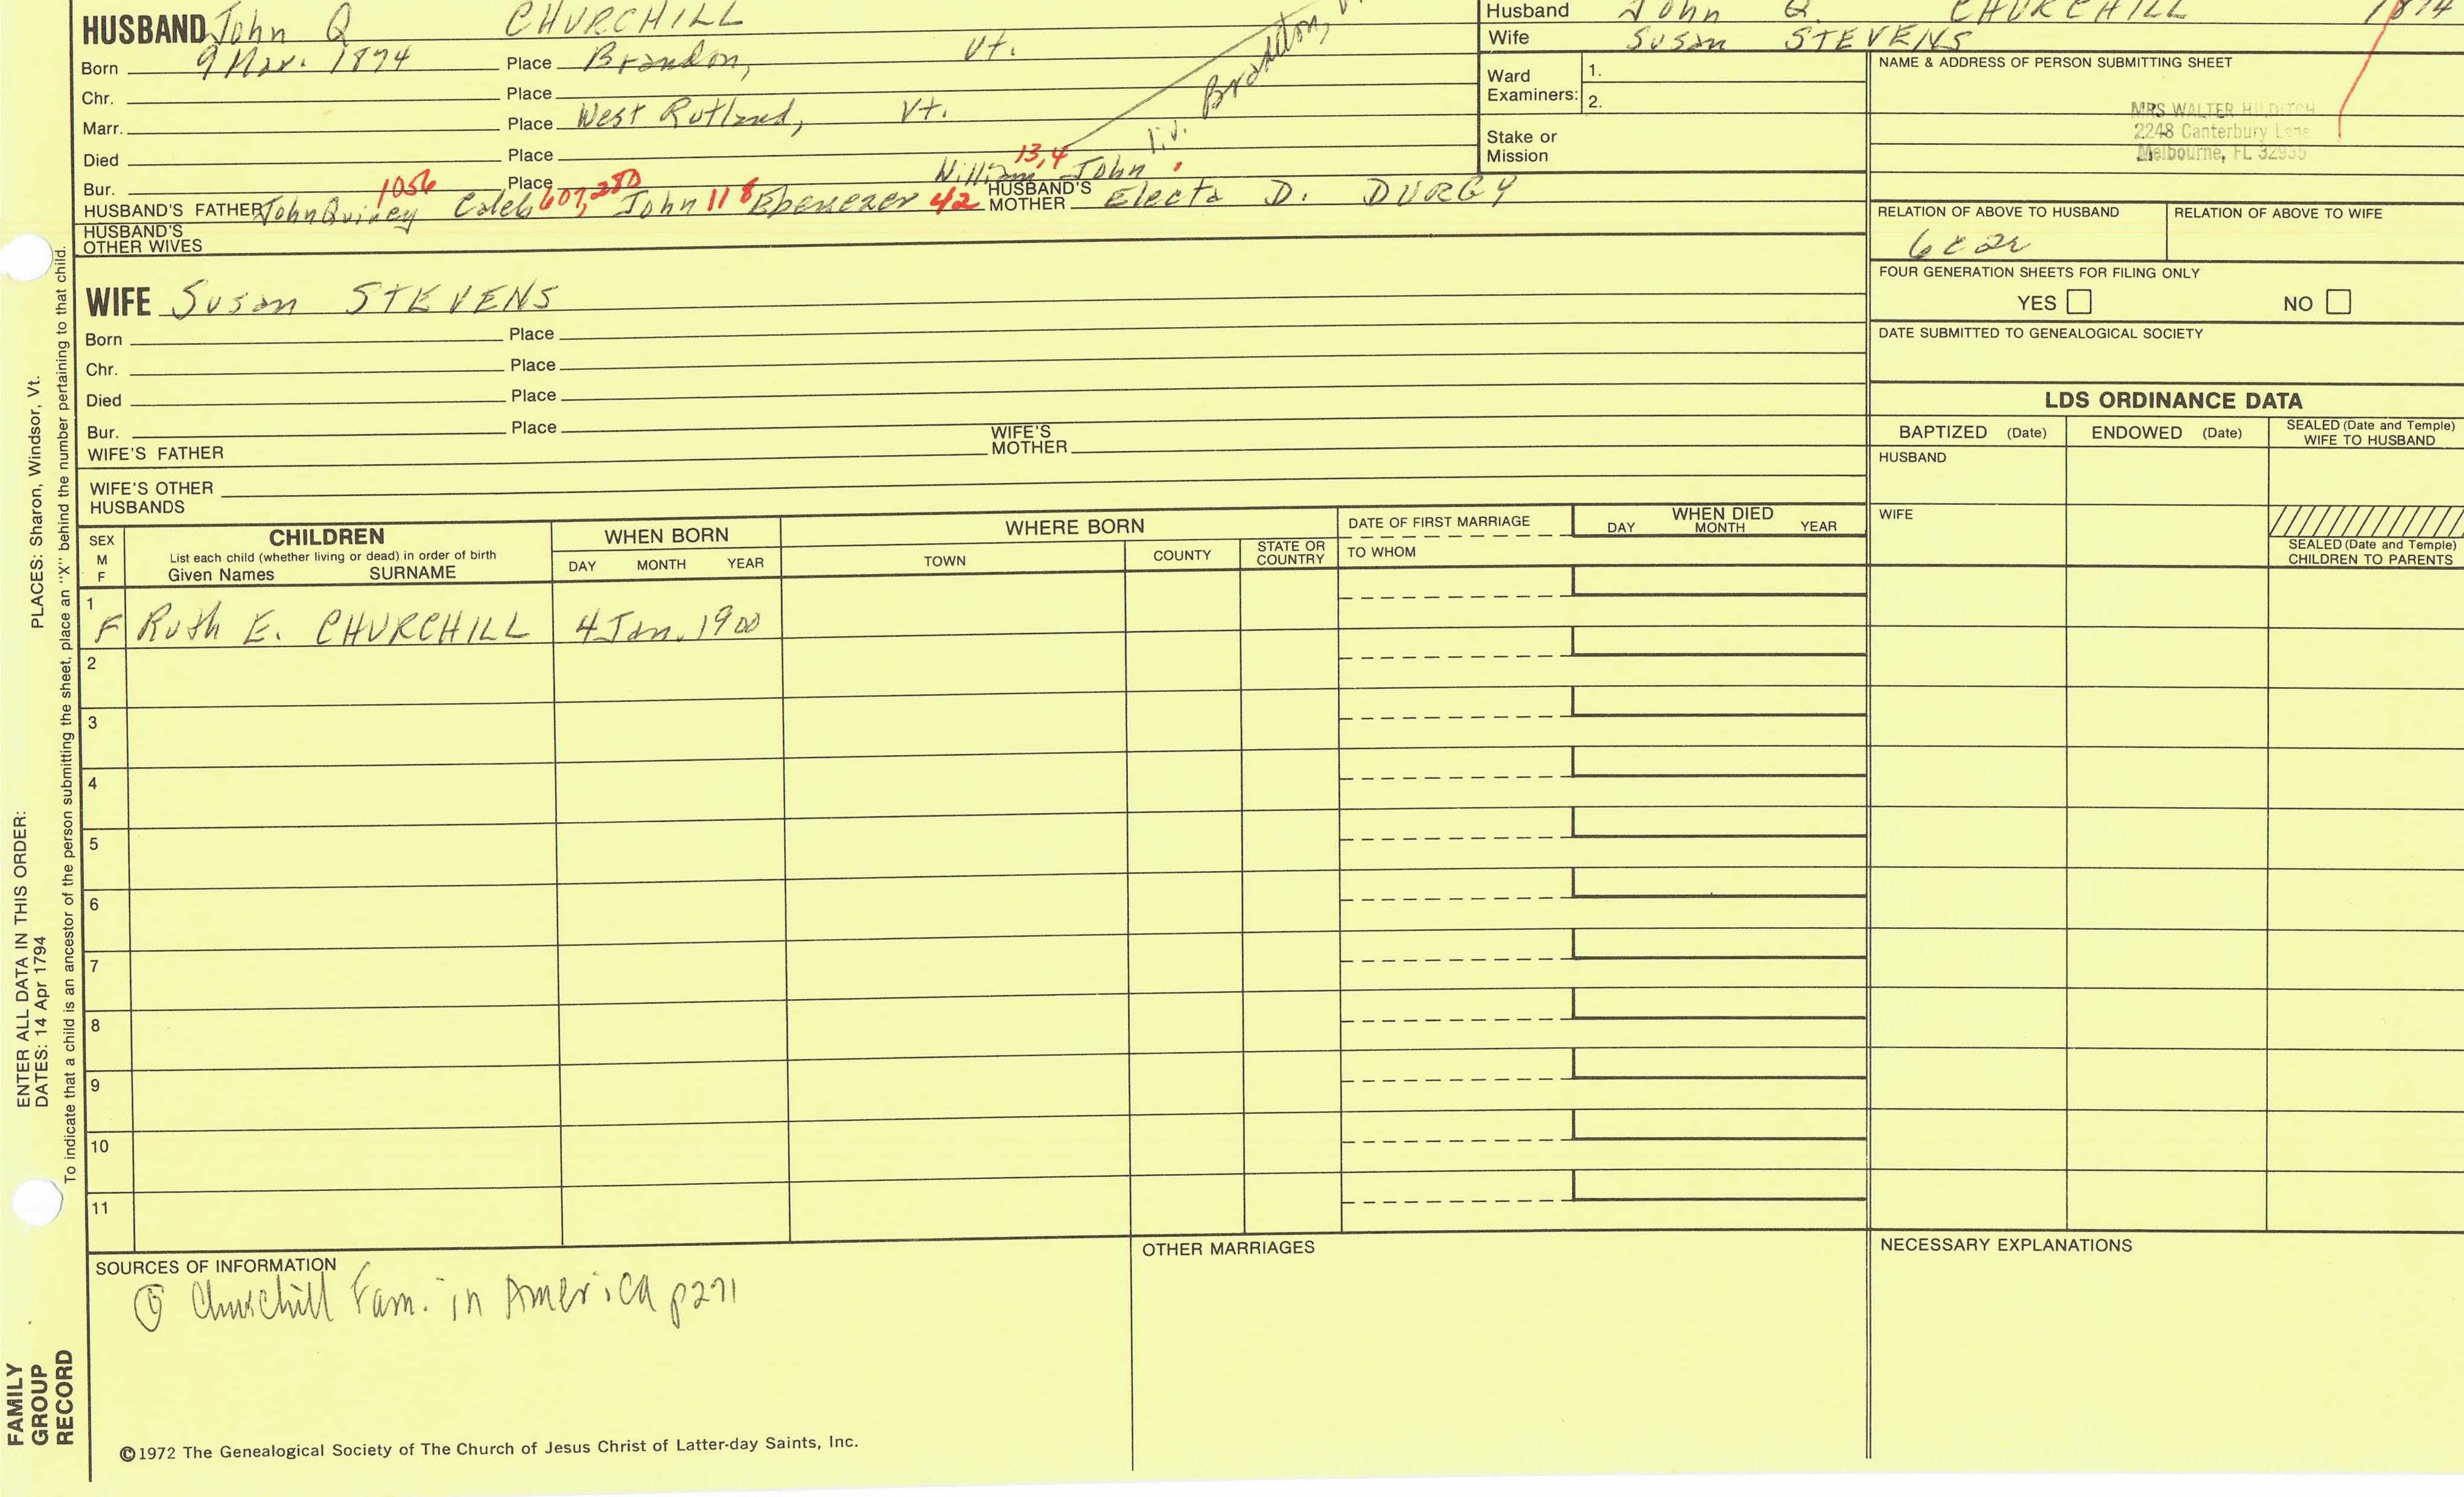 HUSBAND John Q CHURCHILL
Born 9 Mar. 1874 Place Brandon, Vt.
Chr. Place
Marr. Place West Rutland, Vt.
Died Place
Bur. Place
liv. Brandon,
William 13,4 John
HUSBAND'S FATHER John Quincy 1056 Caleb 607,280 John 118 Ebenezer 42 HUSBAND'S MOTHER Electa D. DURGY
HUSBAND'S OTHER WIVES
WIFE Susan STEVENS
Born Place
Chr. Place
Died Place
Bur. Place
WIFE'S FATHER WIFE'S MOTHER
WIFE'S OTHER HUSBANDS
Husband John Q. CHURCHILL 1874
Wife Susan STEVENS
Ward Examiners: 1.
2.
Stake or Mission
NAME & ADDRESS OF PERSON SUBMITTING SHEET
MRS WALTER HILDITCH
2248 Canterbury Lane
Melbourne, FL 32935
RELATION OF ABOVE TO HUSBAND RELATION OF ABOVE TO WIFE
6c2r
FOUR GENERATION SHEETS FOR FILING ONLY
YES NO
DATE SUBMITTED TO GENEALOGICAL SOCIETY
LDS ORDINANCE DATA
BAPTIZED (Date) ENDOWED (Date) SEALED (Date and Temple) WIFE TO HUSBAND
HUSBAND
WIFE
SEALED (Date and Temple) CHILDREN TO PARENTS
SEX M F
CHILDREN
List each child (whether living or dead) in order of birth
Given Names SURNAME
WHEN BORN
DAY MONTH YEAR
WHERE BORN
TOWN COUNTY STATE OR COUNTRY
DATE OF FIRST MARRIAGE
TO WHOM
WHEN DIED
DAY MONTH YEAR
1
F Ruth E. CHURCHILL 4 Jan. 1900
2
3
4
5
6
7
8
9
10
11
SOURCES OF INFORMATION
Churchill Fam. in America p271
OTHER MARRIAGES
NECESSARY EXPLANATIONS
©1972 The Genealogical Society of The Church of Jesus Christ of Latter-day Saints, Inc.
FAMILY GROUP RECORD
ENTER ALL DATA IN THIS ORDER:
DATES: 14 Apr 1794 PLACES: Sharon, Windsor, Vt.
To indicate that a child is an ancestor of the person submitting the sheet, place an "X" behind the number pertaining to that child.